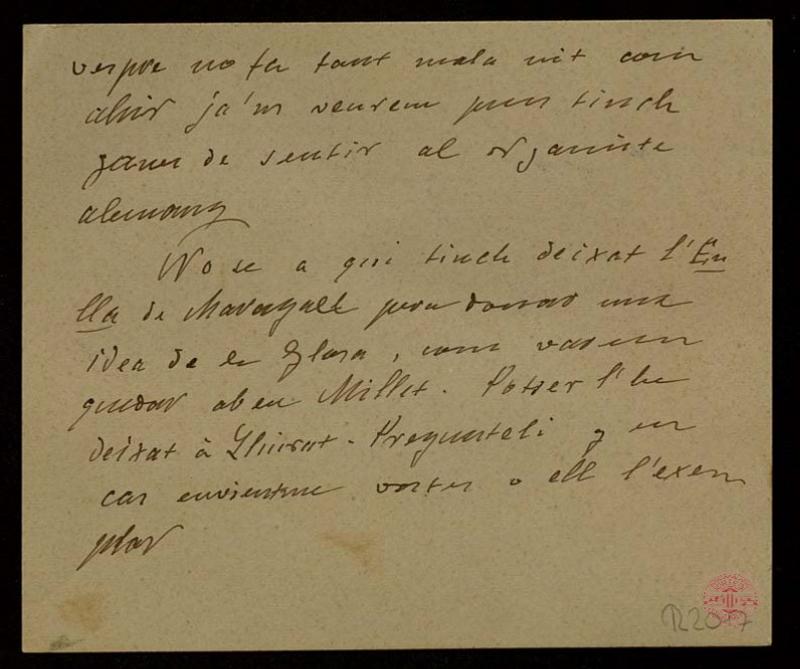 vespre no fa tant mala nit com
ahir ja'ns veurem puis tinch
ganas de sentir al organista
alemany
No se a qui tinch deixat l'En
lla de Maragall pera donar una
idea de la Glosa, com varem
quedar ab en Millet. Potser l'he
deixat à Llimat. Pregunteli y en
cas envientme vostes o ell l'exem
plar
R2017